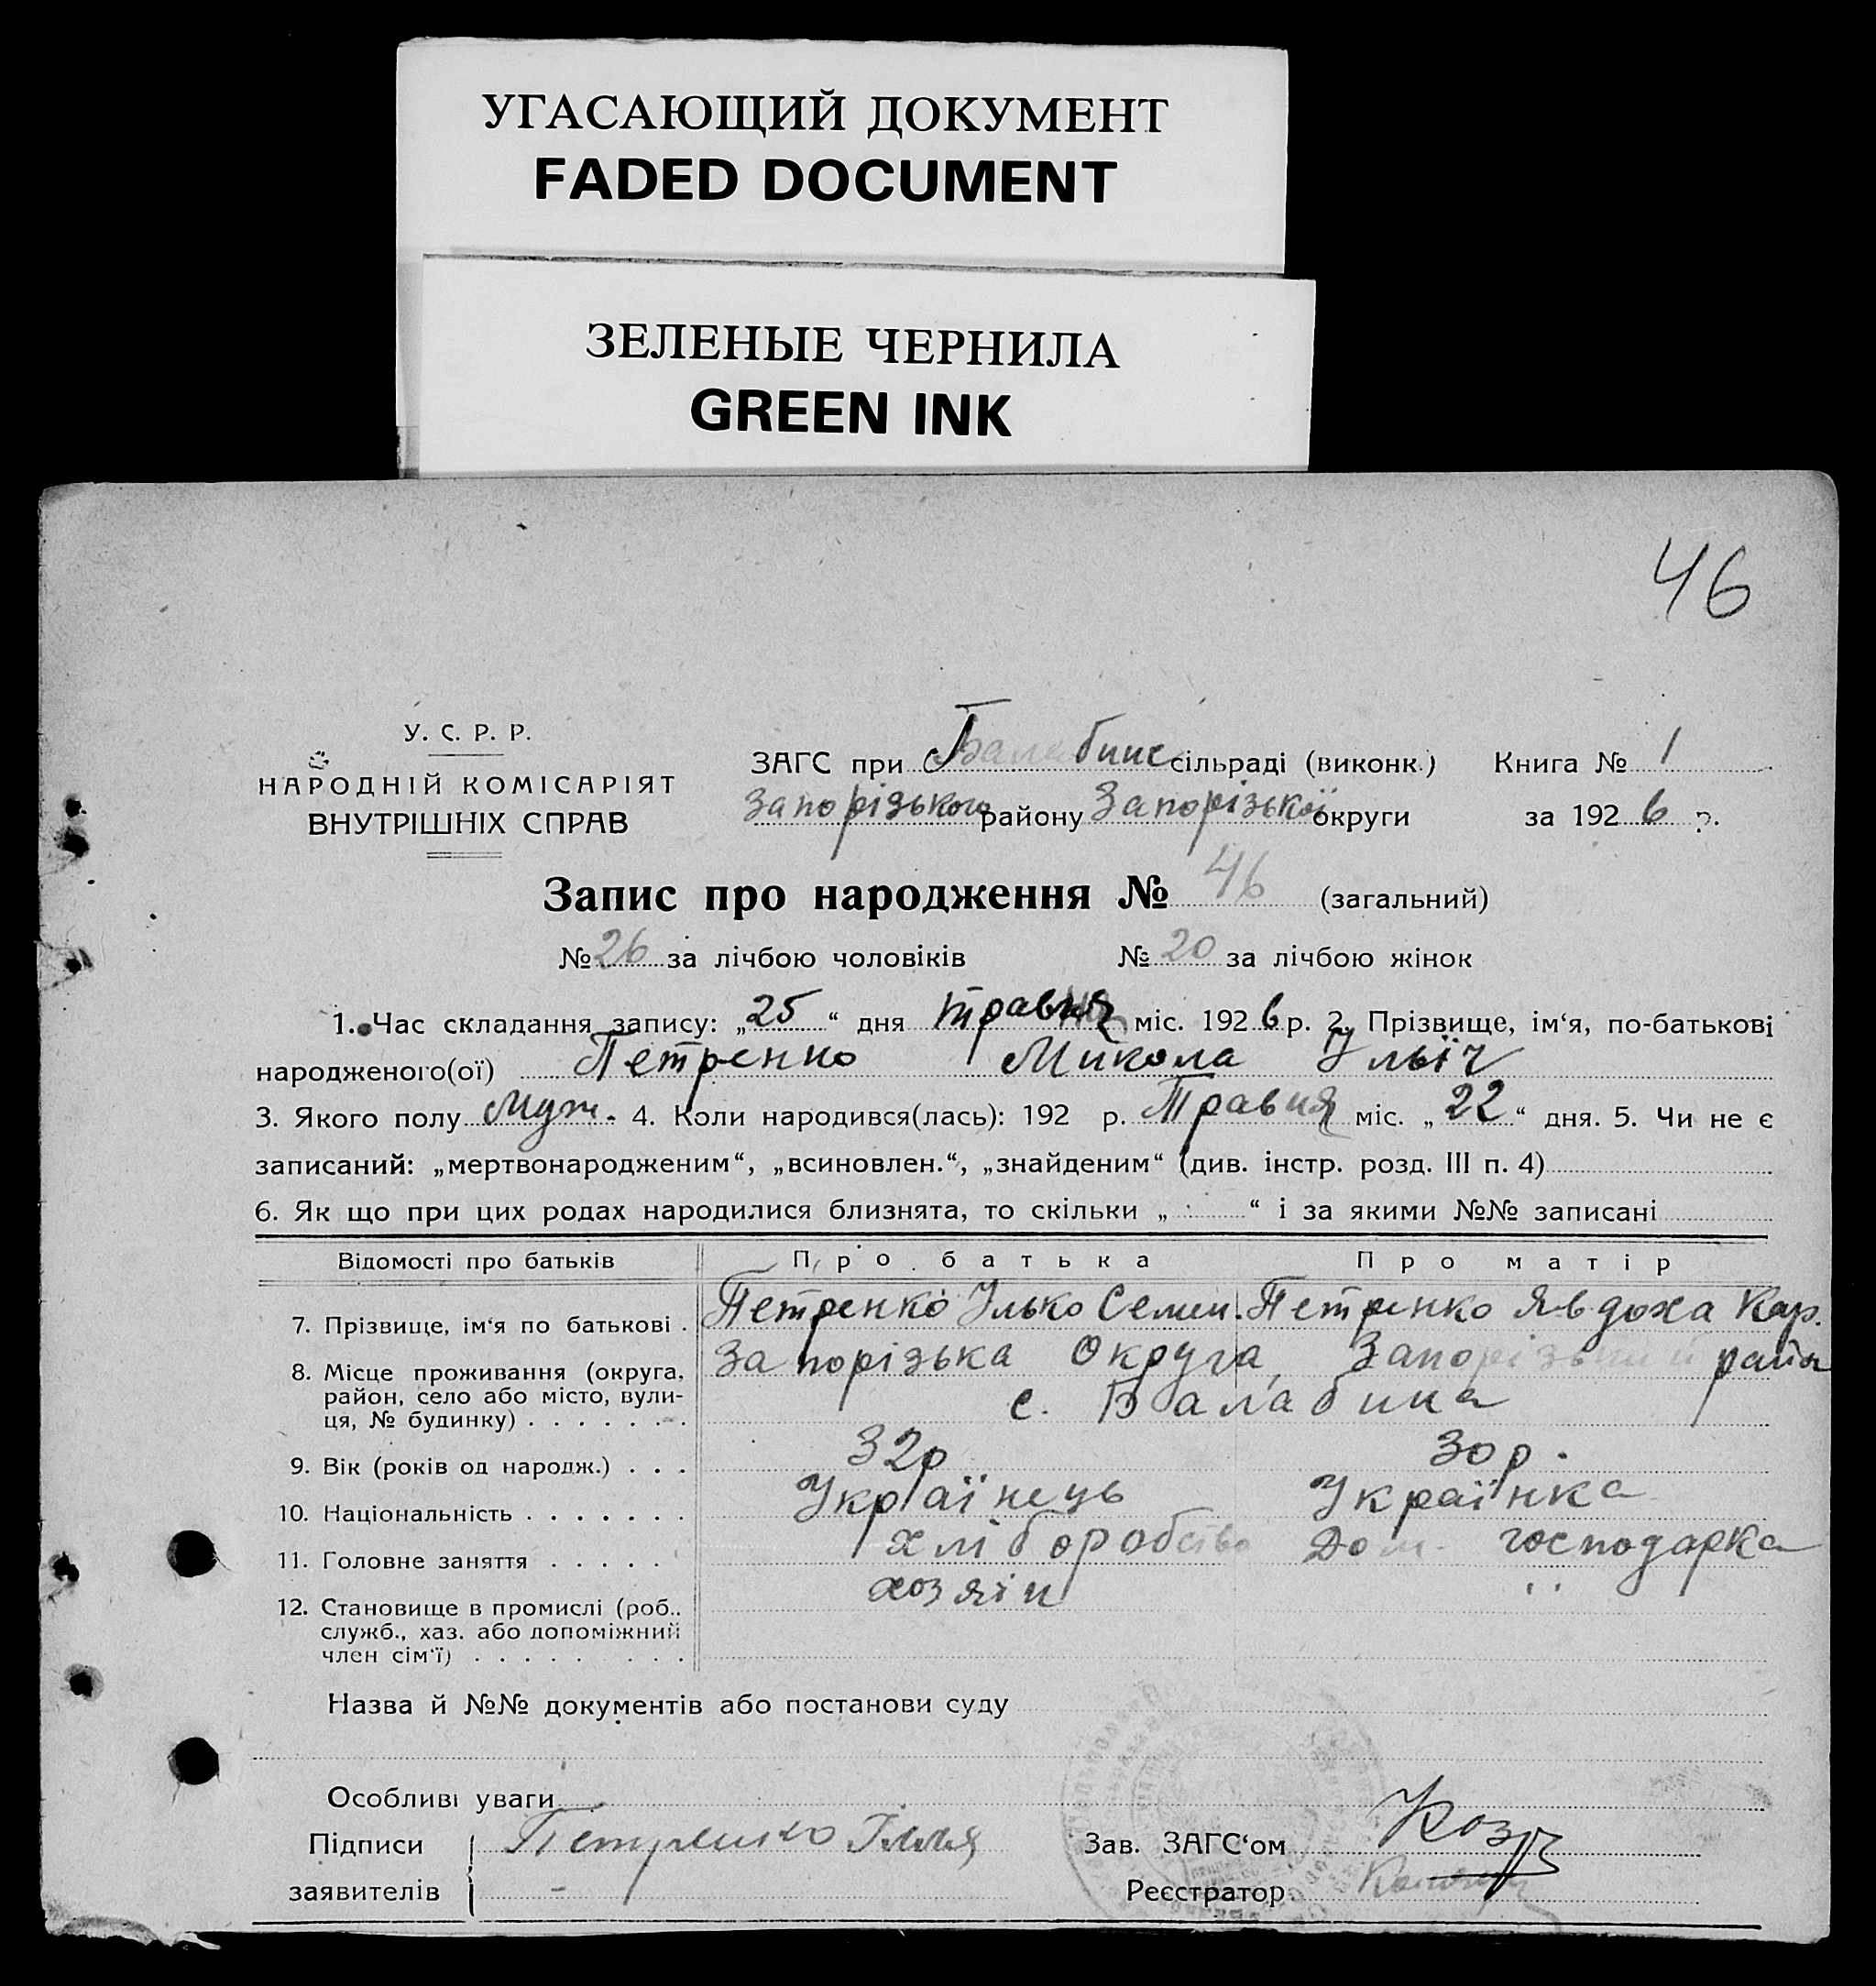 УГАСАЮЩИЙ ДОКУМЕНТ
FADED DOCUMENT
ЗЕЛЕНЫЕ ЧЕРНИЛА
GREEN INK
46
У. С. Р. Р.
НАРОДНІЙ КОМІСАРІЯТ
ВНУТРІШНІХ СПРАВ
ЗАГС при Балабинс сільраді (виконк.) Книга № 1
Запорізького району Запорізької округи за 1926 р.
Запис про народження № 46 (загальний)
№ 26 за лічбою чоловіків № 20 за лічбою жінок
1. Час складання запису: „25“ дня травня міс. 1926 р. 2. Прізвище, ім‘я, по-батькові
народженого(ої) Петренко Микола Ульїч
3. Якого полу Муж. 4. Коли народився(лась): 192 р. Травня міс. „22“ дня. 5. Чи не є
записаний: „мертвонародженим“, „всиновлен.“, „знайденим“ (див. інстр. розд. III п. 4)
6. Як що при цих родах народилися близнята, то скільки „ “ і за якими №№ записані
Відомості про батьків Про батька Про матір
7. Прізвище, ім‘я по батькові . Петренко Улько Семен. Петренко Явдоха Кар.
8. Місце проживання (округа, Запорізька Округа, Запорізький район
район, село або місто, вули- с. Балабина
ця, № будинку) . . . . . . .
9. Вік (років од народж.) . . . 32р 30 р.
10. Національність . . . . . . . Українець Українка
11. Головне заняття . . . . . Хліборобство Дом. господарка
12. Становище в промислі (роб., хозяін "
служб., хаз. або допоміжний
член сім‘ї) . . . . . . . . .
Назва й №№ документів або постанови суду
Особливі уваги
Підписи Петренко Ілля Зав. ЗАГС‘ом
заявителів Реєстратор